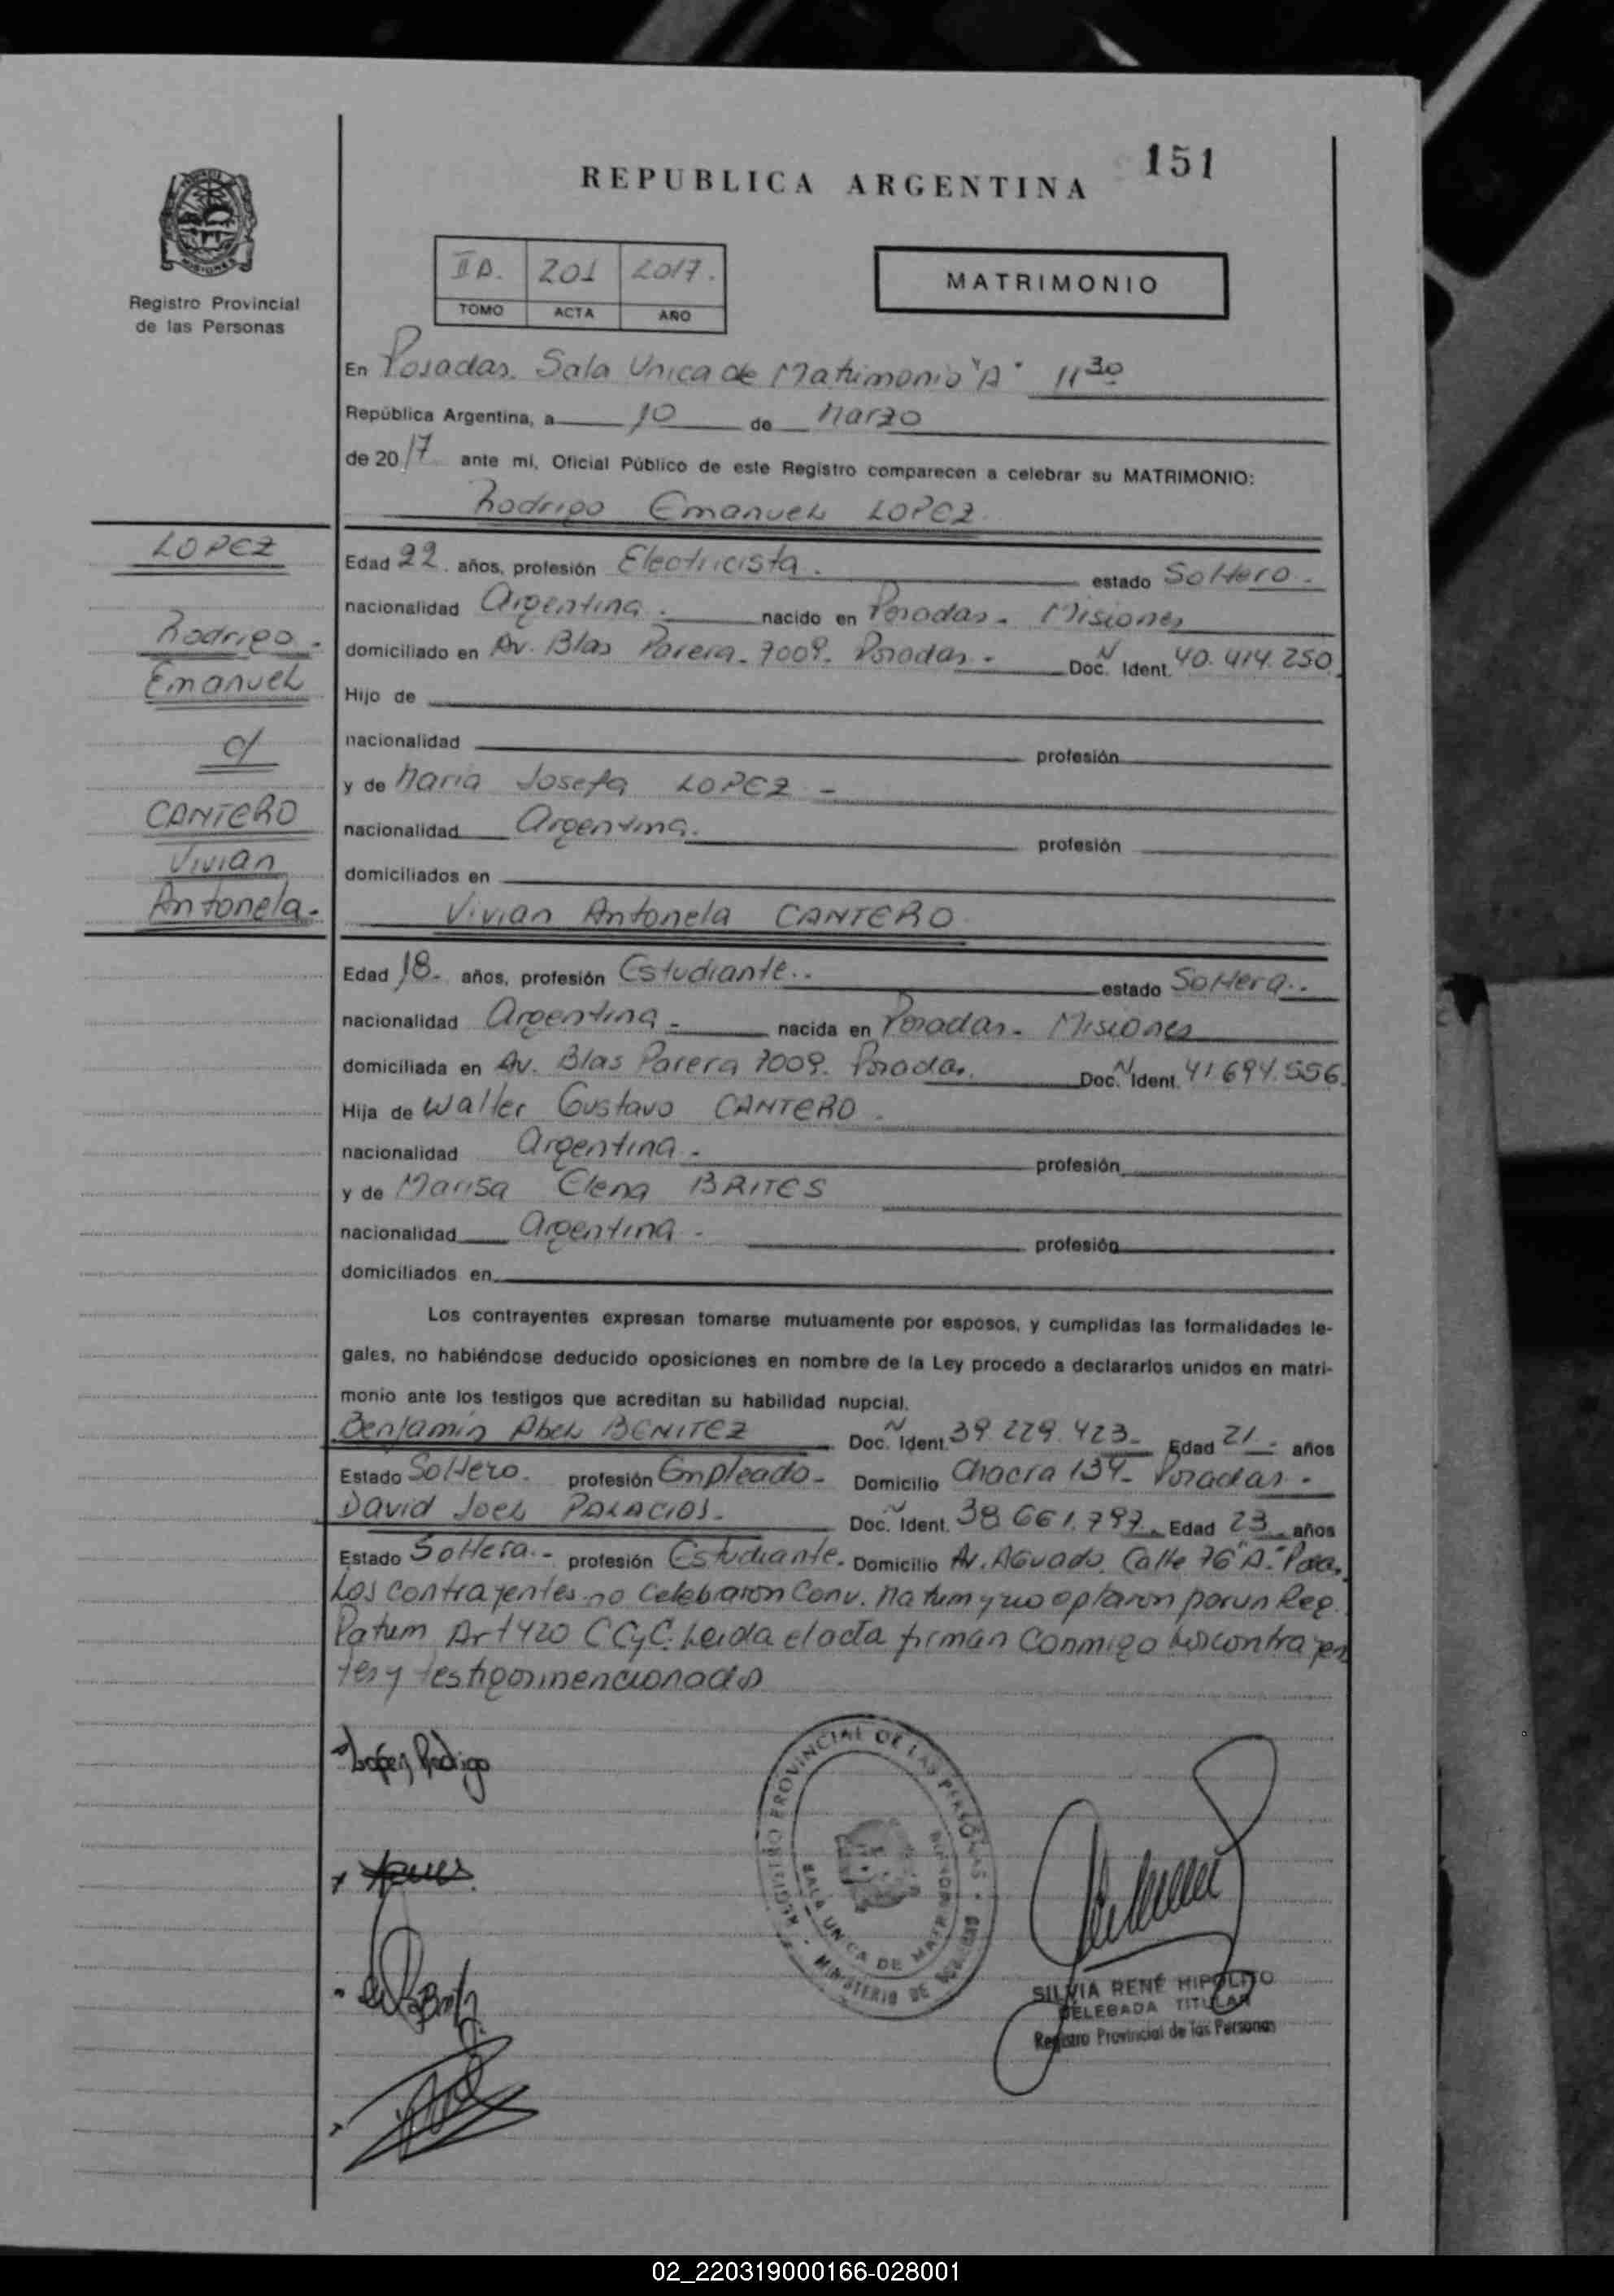 151
REPUBLICA ARGENTINA
MISIONES
Registro Provincial
de las Personas
II A. 201 2017.
TOMO ACTA AÑO
MATRIMONIO
En Posadas. Sala Unica de Matrimonio "A" 11 30
República Argentina, a 10 de Marzo
de 20 17 ante mi, Oficial Público de este Registro comparecen a celebrar su MATRIMONIO:
Rodrigo Emanuel LOPEZ.
LOPEZ
Rodrigo.
Emanuel
c/
CANTERO
Vivian
Antonela.
Edad 22. años, profesión Electricista. estado Soltero.
nacionalidad Argentina. nacido en Posadas. Misiones
domiciliado en Av. Blas Parera. 7009. Posadas. Doc. N Ident. 40.414.250.
Hijo de
nacionalidad profesión
y de Maria Josefa LOPEZ -
nacionalidad Argentina. profesión
domiciliados en
Vivian Antonela CANTERO
Edad 18. años, profesión Estudiante.. estado Soltera..
nacionalidad Argentina. nacida en Posadas. Misiones
domiciliada en Av. Blas Parera 7009. Posadas. Doc. N Ident. 41.694.556.
Hija de Walter Gustavo CANTERO.
nacionalidad Argentina. profesión
y de Marisa Elena BRITES
nacionalidad Argentina. profesión
domiciliados en
Los contrayentes expresan tomarse mutuamente por esposos, y cumplidas las formalidades le-
gales, no habiéndose deducido oposiciones en nombre de la Ley procedo a declararlos unidos en matri-
monio ante los testigos que acreditan su habilidad nupcial.
Benjamin Abel BENITEZ Doc. N Ident. 39.229.423. Edad 21. años
Estado Soltero. profesión Empleado. Domicilio Chacra 134. Posadas.
David Joel PALACIOS. Doc. N Ident. 38.661.797. Edad 23 años
Estado Soltera. profesión Estudiante. Domicilio Av. Aguado. Calle 76 "A." Pdas.
Los contrayentes no celebraron Conv. Matrim y no optaron por un Reg.
Patrim Art 420 CCyC. Leida el acta firman conmigo los contrayen
tes y testigos mencionados
Lopez Rodrigo
REGISTRO PROVINCIAL DE LAS PERSONAS
SALA UNICA DE MATRIMONIO
MINISTERIO DE GOBIERNO
SILVIA RENÉ HIPOLITO
DELEGADA TITULAR
Registro Provincial de las Personas
02_220319000166-028001